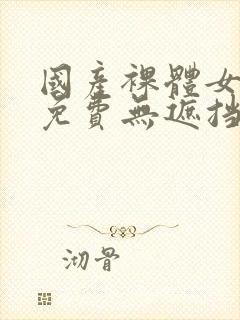 國產裸體女
免費無遮挡
沏骨